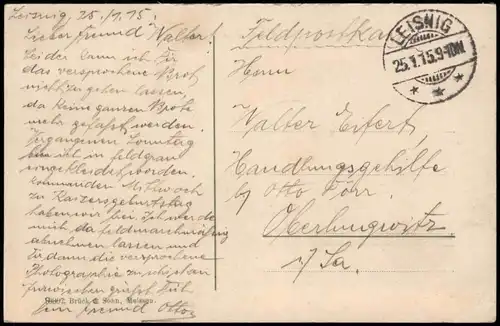 Leisnig, 25./1.15.
Lieber Freund Walter!
Leider kann ich Dir
das versprochene Brot
nicht zugehen lassen,
da keine ganzen Brote
mehr gefasst werden.
Vergangenen Sonntag
bin ich in feldgrau
eingekleidet worden.
kommenden Mittwoch
zu Kaisersgeburtstag
haben wir frei. Ich werde
mich da feldmarschmäßig
abnehmen lassen und
Dir dann die versprochene
Photographie zuschicken
inzwischen grüßt Dich
Dein Freund Otto
Brück & Sohn, Meissen.
Feldpostkarte
LEISNIG
25.1.15.9-10V.
Herrn
Walter Eifert,
Handlungsgehilfe
by Otto Dörr
Oberlungwitz
i/Sa.